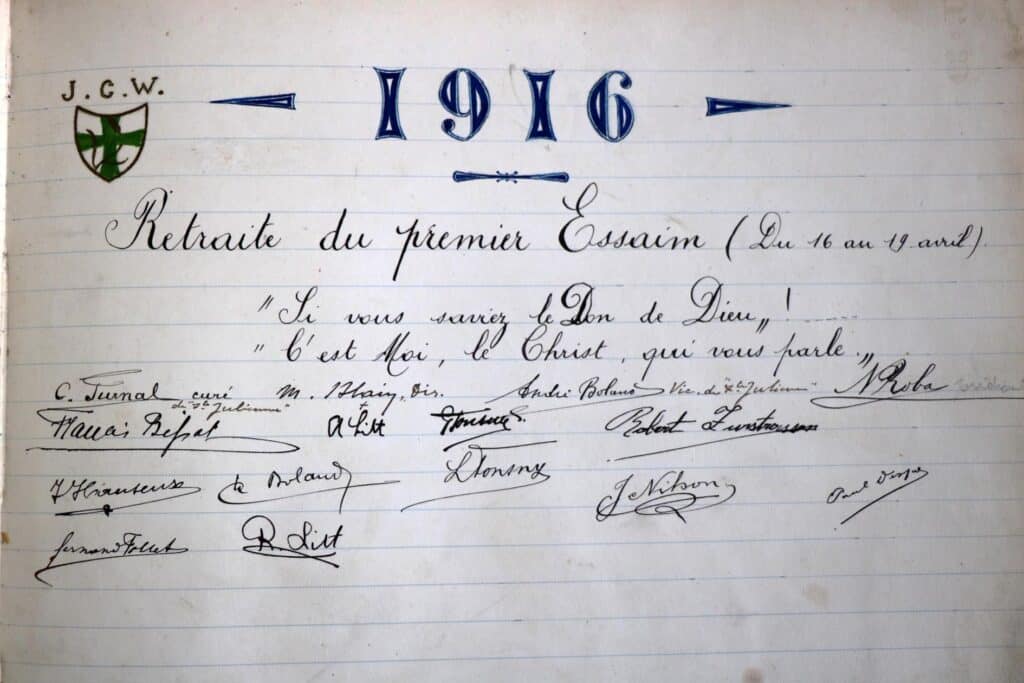 J.C.W.
1916
Retraite du premier Essaim (Du 16 au 19 avril).
"Si vous saviez le Don de Dieu„!
"C'est Moi, le Christ, qui vous parle.„
C. Turnal curé M. Blain, Dir. André Boland Vic. de "Ste Julienne" N Roba
de "Ste Julienne"
A Litt Robert
Boland L Tonsny J Nilson Paul
Fernand Follet R. Litt